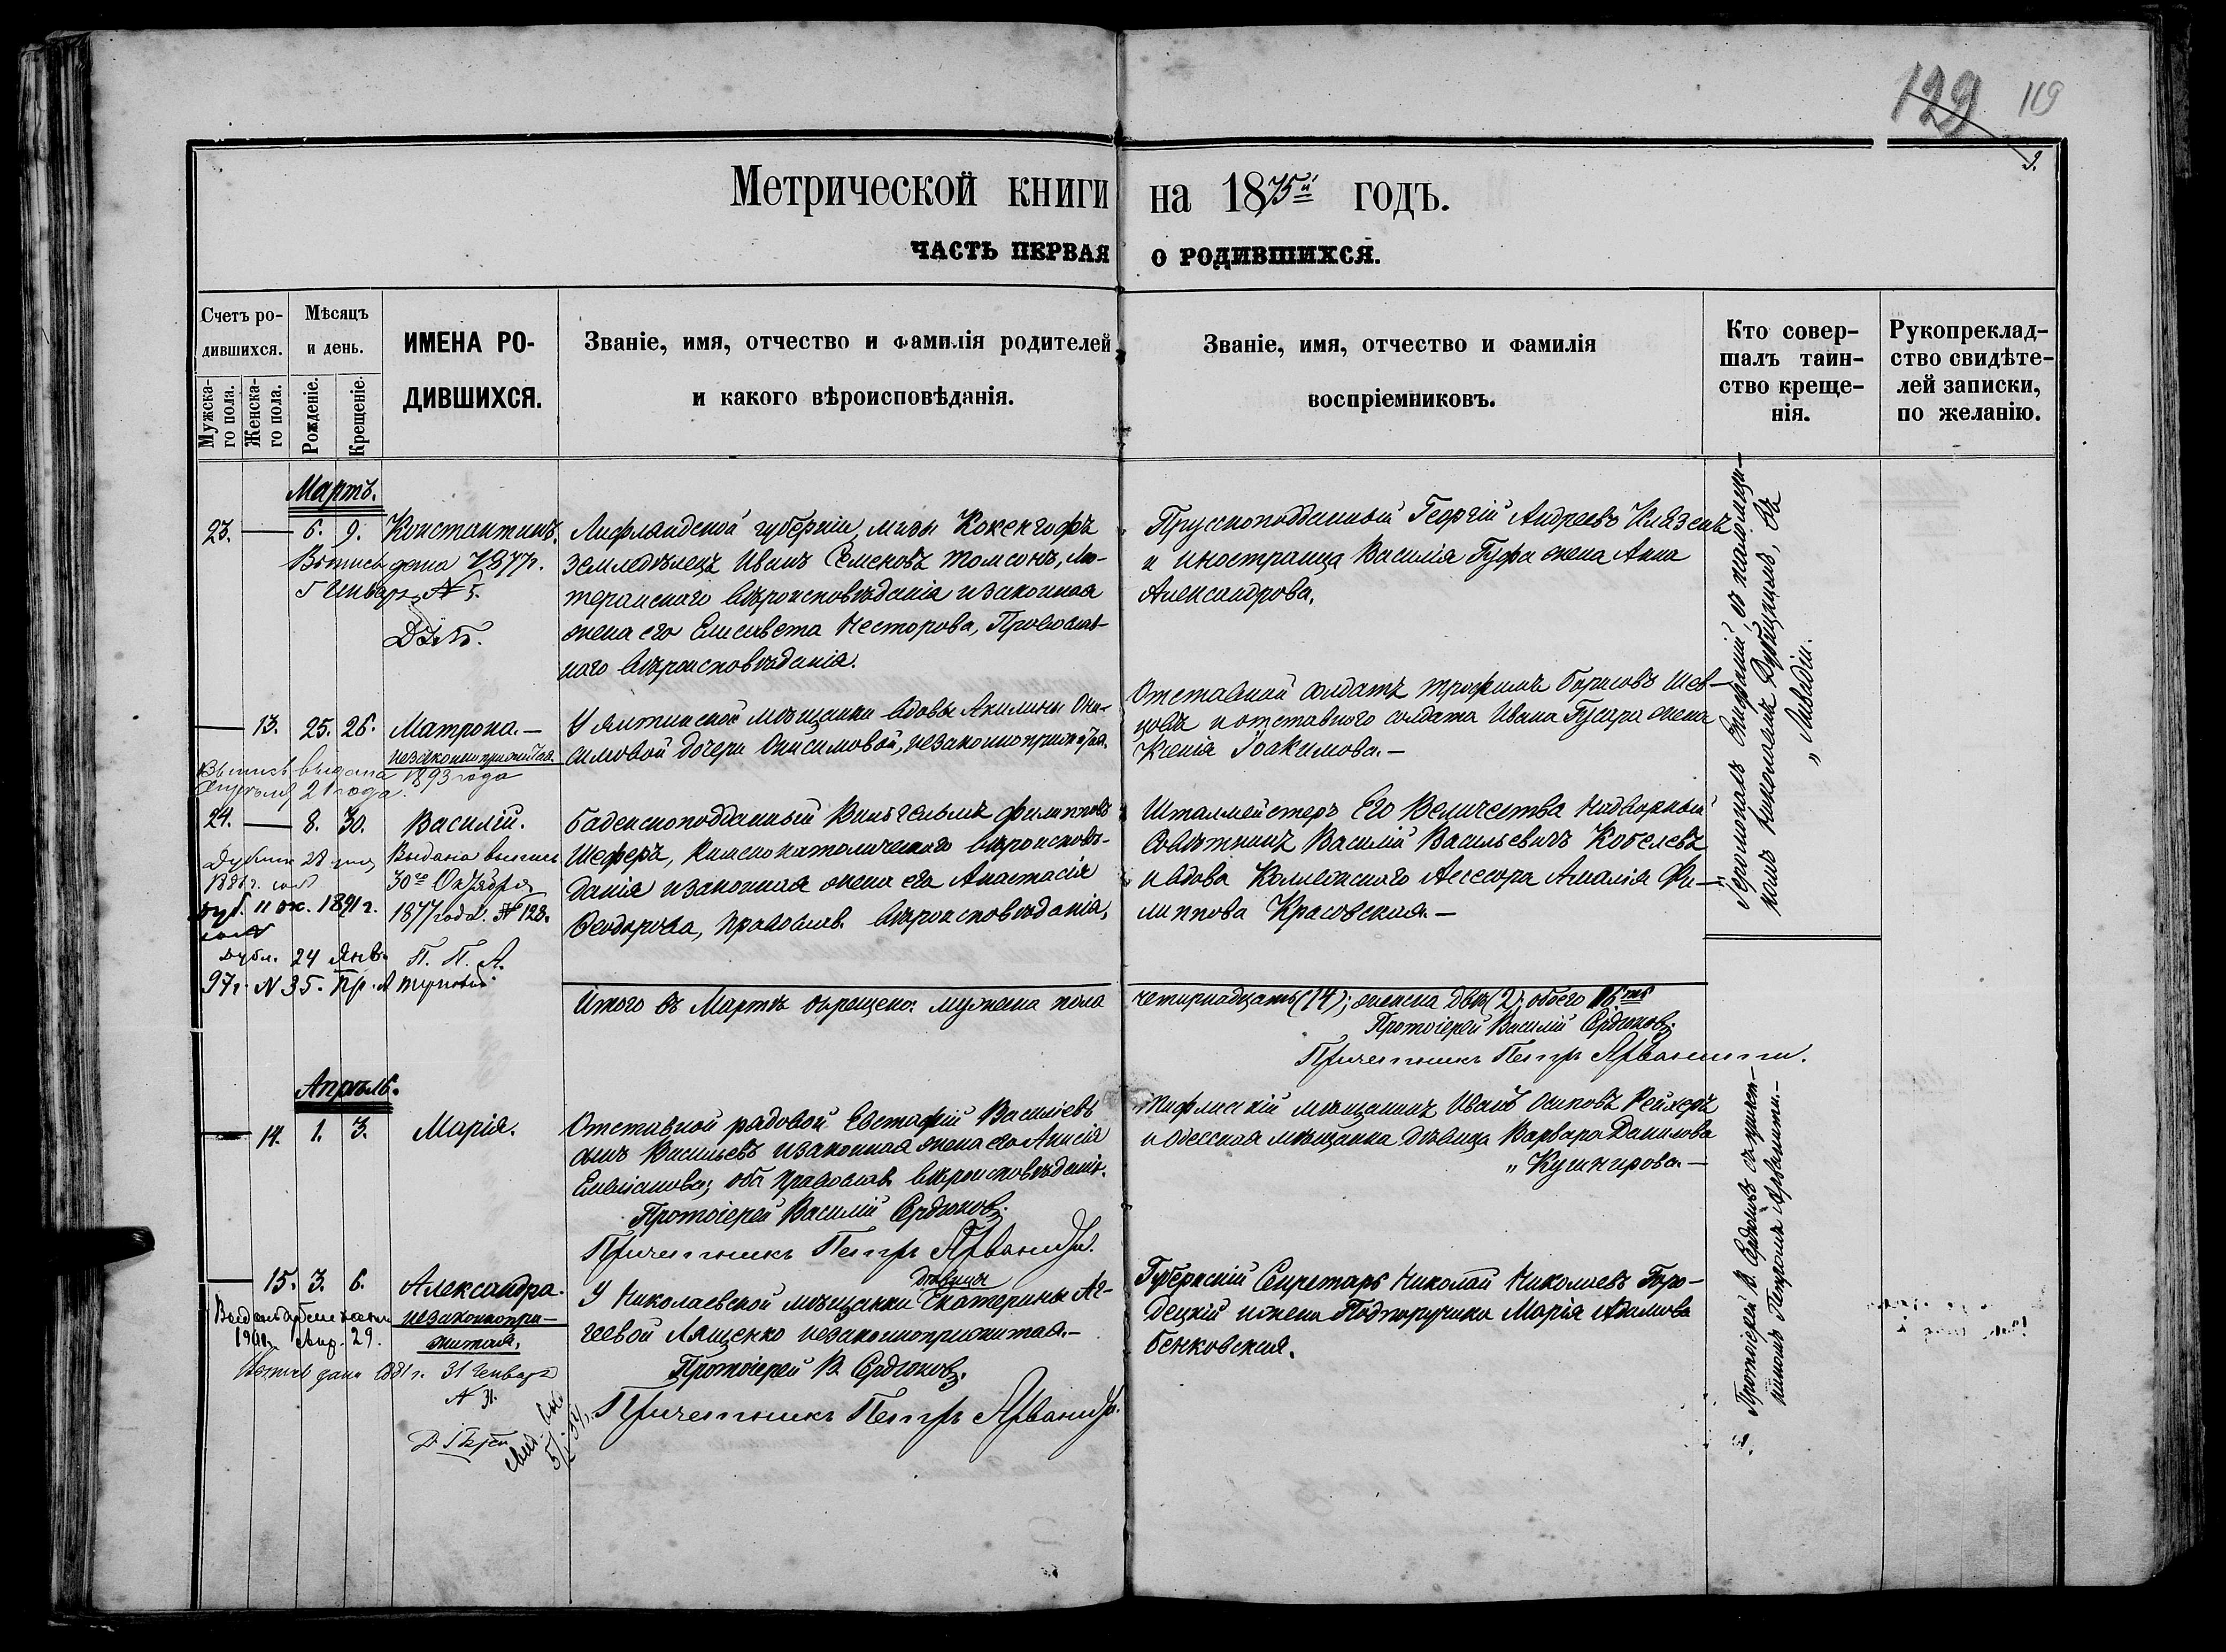 129 119
9.
Метрической книги на 1875й годъ.
ЧАСТЬ ПЕРВАЯ О РОДИВШИХСЯ.
Счетъ ро-
дившихся.
Мужска-
го пола.
Женска-
го пола.
Мѣсяцъ
и день.
Рожденіе.
Крещеніе.
ИМЕНА РО-
ДИВШИХСЯ.
Званіе, имя, отчество и фамилія родителей
и какого вѣроисповѣданія.
Званіе, имя, отчество и фамилія
воспріемниковъ.
Кто совер-
шалъ таин-
ство креще-
нія.
Рукопреклад-
ство свидѣте-
лей записки,
по желанію.
Мартъ.
23. — 6. 9. Константинъ.
Выпись дана 1877г.
5 Января № 5.
Лифляндской губерніи, мызы Кокенгофъ
земледѣлецъ Иванъ Семеновъ Томсонъ, лю-
теранскаго вѣроисповѣданія и законная
жена его Елисавета Несторова, Православ-
наго вѣроисповѣданія.
Прусскоподданный Георгій Андреевъ
и иностранца Василія Гуфа жена Анна
Александрова.
— 13. 25. 26. Матрона.—
незаконнорожд.
Выпись выдана 1893 года
Апрѣля 21 года.
У ялтинской мѣщанки вдовы Акилины Они-
симовой дочери Онисимовой, незаконноприжитая.
Отставной солдатъ Трофимъ Борисовъ Шев-
цовъ и отставного солдата Ивана Гусара жена
Ксенія Іоакимова.—
24. — 8. 30. Василій.
Выдана выпись
30го Октября
1877 года. № 128.
П. П. А.
1891 г.
Дубл. 24 Янв.
97 г. № 35.
Баденскоподданный Вильгельмъ Филипповъ
Шеферъ, Римскокатолическаго вѣроисповѣ-
данія и законная жена его Анастасія
Ѳеодорова, православ. вѣроисповѣданія.
Шталмейстеръ Его Величества Надворный
Совѣтникъ Василій Васильевичъ Кобелевъ
и вдова Коллежскаго Ассесора Амалія Фи-
липпова Красовская.—
Іеромонахъ
номъ Николаемъ Дубицкимъ, въ
„ Ливадіи.
Итого въ Мартѣ окрещено: мужеска пола четырнадцать (14); женска двѣ (2); обоего 16ть
Протоіерей Василій Сердюковъ.
Причетникъ Петръ Арванити.
Апрѣль.
— 14. 1. 3. Марія.
Отставной рядовой Евстафій Василіевъ
сынъ Васильевъ и законная жена его Анисія
Емиліанова; оба православ. вѣроисповѣданія.
Протоіерей Василій Сердюковъ.
Причетникъ Петръ Арваниди.
Тифлисскій мѣщанинъ Иванъ Осиповъ Рейхеръ
и Одесская мѣщанка дѣвица Варвара Данилова
„ Кушнирова.—
— 15. 3. 6. Александра.
незаконнопри-
житая.
Апр. 29.
Выпись дана 1881 г. 31 Января
№ 31.
дѣвицы
У Николаевской мѣщанки Екатерины Ав-
геевой Лященко незаконноприжитая.—
Протоіерей В. Сердюковъ.
Причетникъ Петръ Арваниди.
Губернскій Секретарь Николай Николаевъ Горо-
децкій и жена Подпоручика Марія Адамова
Бенковская.
Протоіерей В. Сердюковъ съ причет-
никомъ Петромъ Арванити.—